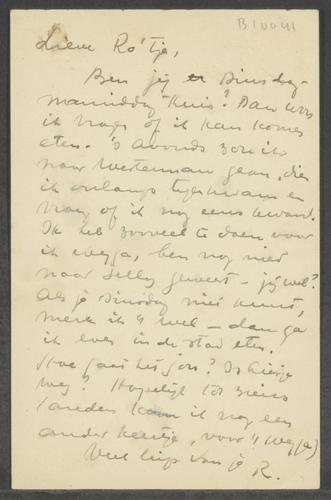 B10041
Lieve Ro'tje,
Ben jij er Dinsdag-
namiddag thuis? Dan wou
ik vragen of ik kan komen
eten. 's Avonds zou ik
naar Westerman gaan, dien
ik onlangs tegenkwam en
vroeg of ik nog eens kwam.
Ik heb zooveel te doen voor
ik wegga, ben nog niet
naar geweest – jij wel?
Als je Dinsdag niet kunt,
merk ik 't wel – dan ga
ik even in de stad eten.
Hoe gaat het Is
weg? Hopelijk tot ziens
(anders kom ik nog een
ander keertje, voor 't wegga)
Veel liefs van je R.